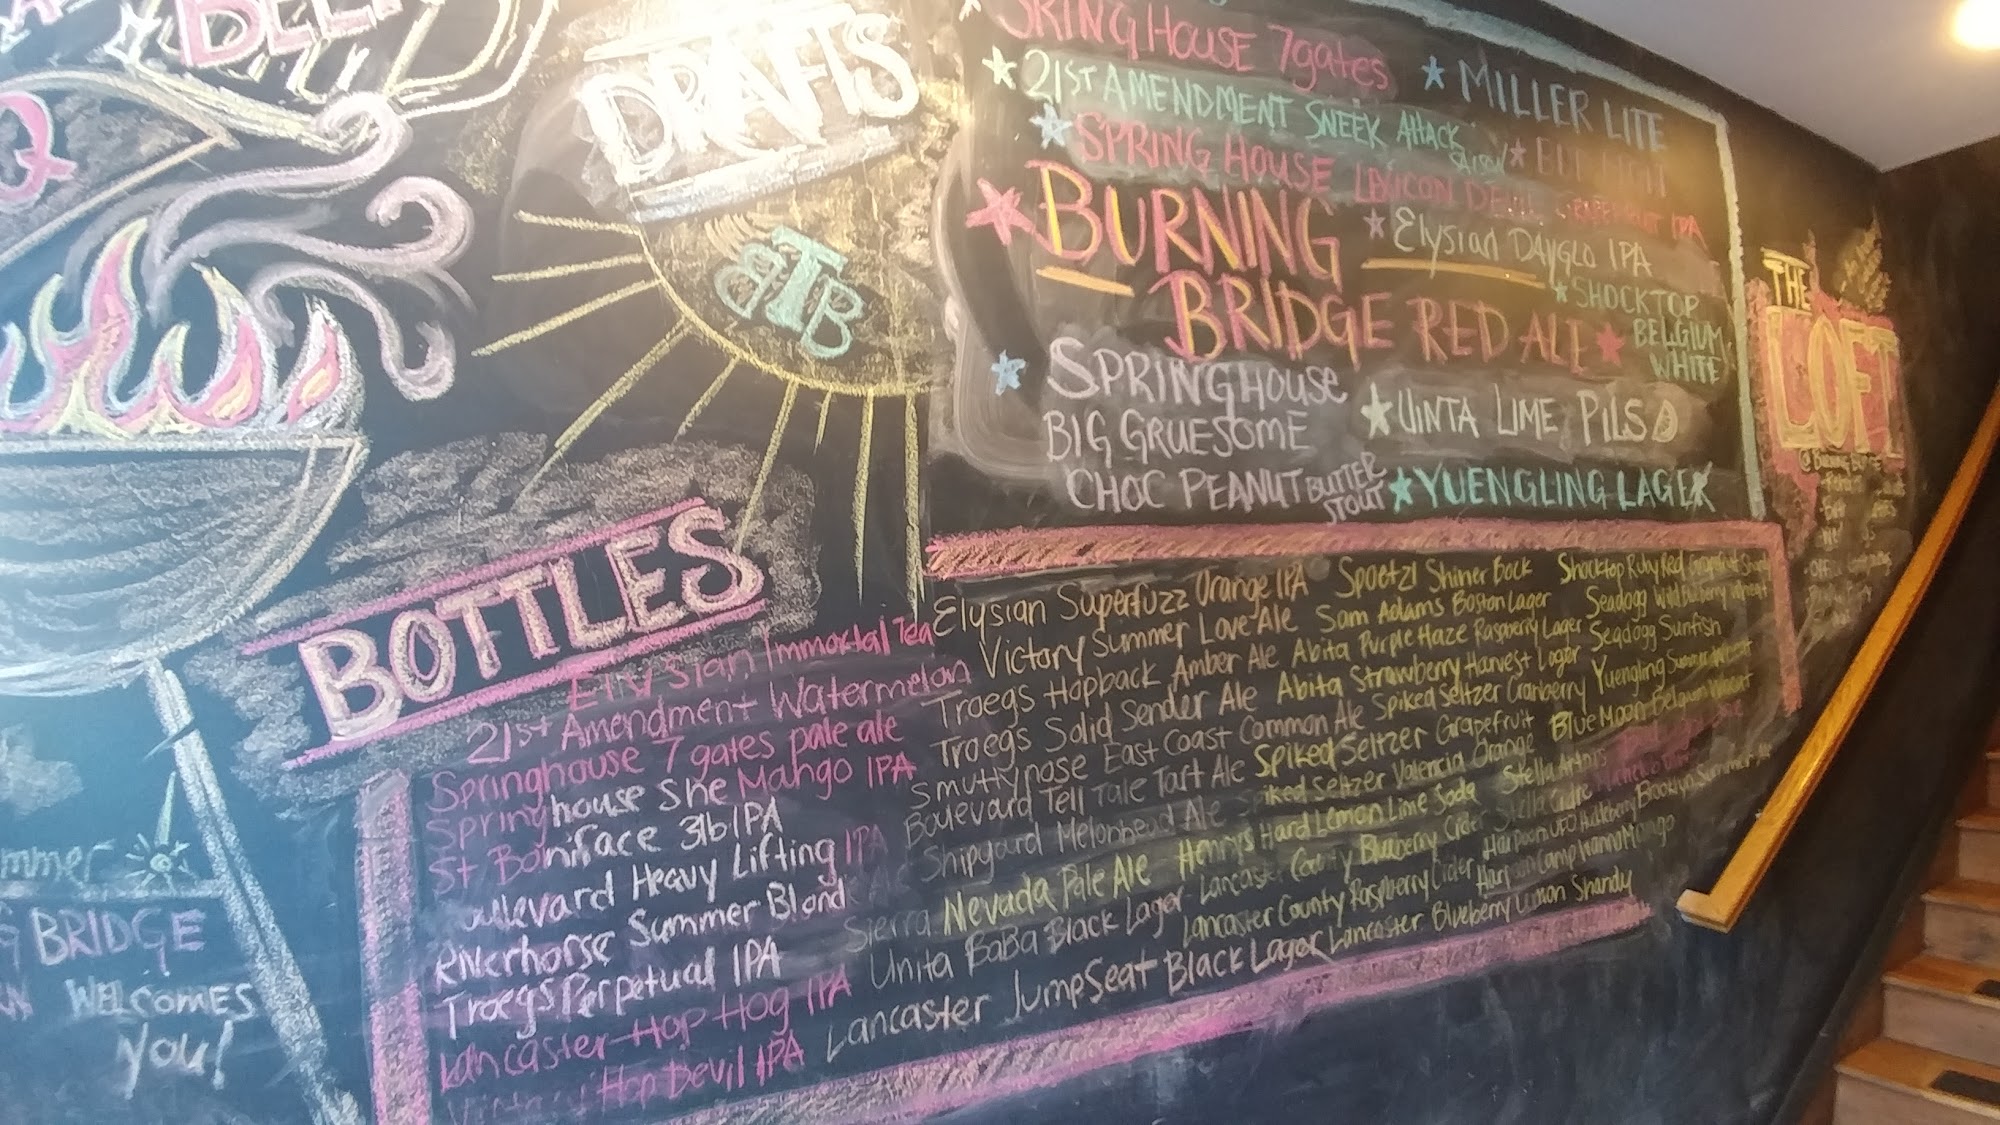 BEER
DRAFTS
BTB
SPRING HOUSE 7gates
21ST AMENDMENT SNEEK AttACK
SPRING HOUSE LEXICON DEVIL GRAPEFRUIT IPA
BURNING
BRIDGE RED ALE
SPRINGHOUSE
BIG GRUESOME
CHOC PEANUT BUTTER STOUT
MILLER LITE
Elysian DAYGLO IPA
SHOCKTOP
BELGIUM
WHITE
UINTA LIME PILS
YUENGLING LAGER
THE
LOFT
BOTTLES
Elysian Immortal Tea
21st Amendment Watermelon
Springhouse 7 gates pale ale
Springhouse She Mango IPA
St Boniface 3lb IPA
Boulevard Heavy Lifting IPA
Riverhorse Summer Blond
Troegs Perpetual IPA
Lancaster Hop Hog IPA
Victory Hop Devil IPA
Elysian Superfuzz Orange IPA
Victory Summer Love Ale
Troegs Hopback Amber Ale
Troegs Solid Sender Ale
Smuttynose East Coast Common Ale
Boulevard Tell Tale Tart Ale
Shipyard Melonhead Ale
Sierra Nevada Pale Ale
Unita BaBa Black Lager
Lancaster JumpSeat Black Lager
Spoetzl Shiner Bock
Sam Adams Boston Lager
Abita Purple Haze Raspberry Lager
Abita Strawberry Harvest Lager
Spiked Seltzer Cranberry
Spiked Seltzer Grapefruit
Spiked Seltzer Valencia Orange
Henry's Hard Lemon Lime Soda
Lancaster County Blueberry Cider
Lancaster County Raspberry Cider
Lancaster Blueberry Lemon Shandy
Shocktop Ruby Red Grapefruit
Seadogg Wild Blueberry Wheat
Seadogg Sunfish
Yuengling Summer Wheat
Blue Moon Belgium Wheat
Stella Artois
Stella Cidre
Harpoon UFO Huckleberry
Harpoon Camp Wanna Mango
Brooklyn Summer Ale
BRIDGE
WELCOMES
YOU!